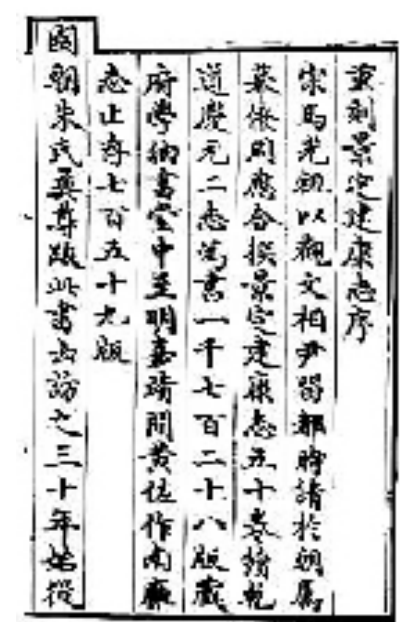 重刻景定建康志序
宋馬光祖以觀文相尹留都時請於朝屬
幕僚周應合撰景定建康志五十卷續乾
道慶元二志爲書一千七百二十八版藏
府學紬書堂中至明嘉靖間黃佐作南廱
志止存七百五十九版
國朝朱氏彝尊跋此書云訪之三十年始從